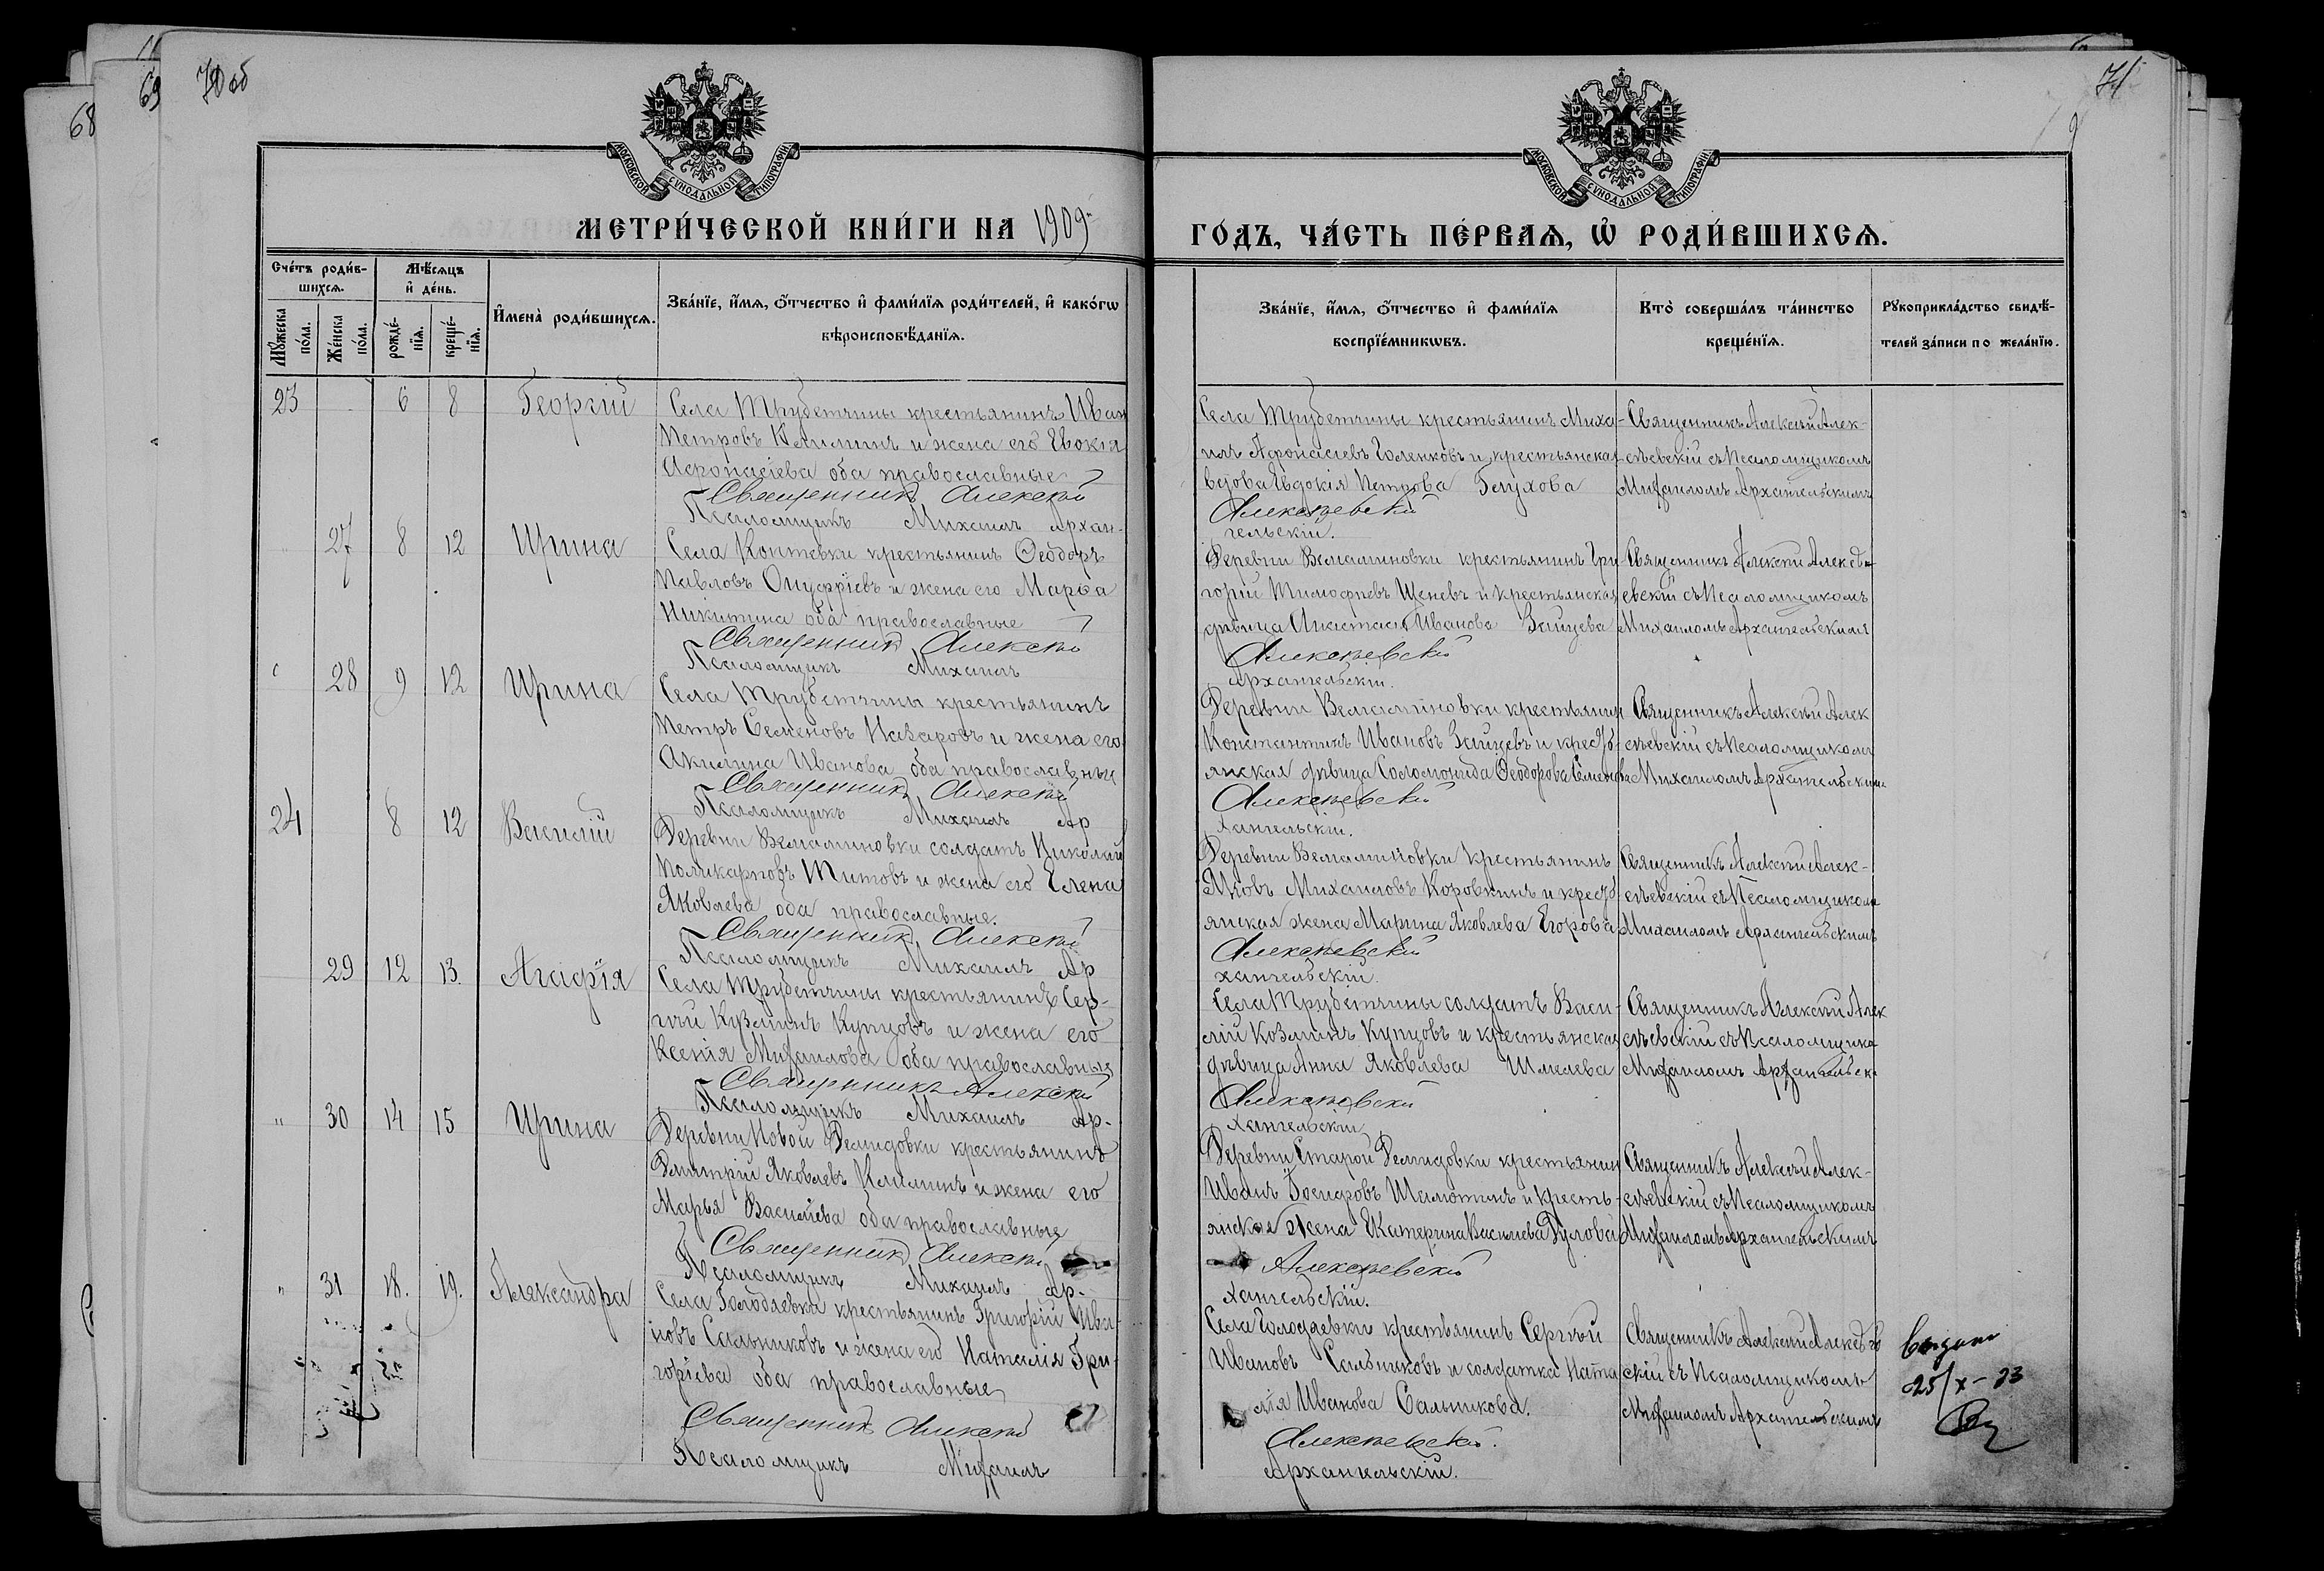 68
69
70 об
71
МОСКОВСКОЙ СѴНОДАЛЬНОЙ ТИПОГРАФІИ
МОСКОВСКОЙ СѴНОДАЛЬНОЙ ТИПОГРАФІИ
МЕТРИ́ЧЕСКОЙ КНИ́ГИ НА 1909
ГО́ДЪ, ЧА́СТЬ ПЕ́РВАѦ, Ѽ РОДИ́ВШИХСѦ.
Сче́тъ роди́в-
шихсѧ.
Мѣ́сѧцъ
и҆ де́нь.
Мꙋ́жеска по́ла.
Же́нска по́ла.
рожде́нїѧ.
креще́нїѧ.
И҆мена̀ роди́вшихсѧ.
Зва́нїе, и҆́мѧ, ѻ҆́тчество и҆ фами́лїѧ роди́телей, и҆ како́гѡ
вѣроисповѣ́данїѧ.
Зва́нїе, и҆́мѧ, ѻ҆́тчество и҆ фами́лїѧ
воспрїе́мникѡвъ.
Кто̀ соверша́лъ та́инство
креще́нїѧ.
Рꙋкоприкла́дство свидѣ́-
телей за́писи по жела́нїю.
23 6 8 Георгій
Села Трубетчины крестьянинъ Иван
Петровъ Климинъ и жена его Евокія
Афонасіева оба православные
Священникъ Алексѣй
Псаломщикъ Михаилъ Архан-
Села Трубетчины крестьянинъ Миха-
илъ Афонасіевъ Голенковъ и крестьянская
вдова Евдокія Петрова Глухова
Алексѣевскій
гельскій.
Священникъ Алексѣй Алек-
сѣевскій съ Псаломщикомъ
Михаиломъ Архангельскимъ
27 8 12 Ирина
Села Коптевки крестьянинъ Ѳеодоръ
Павловъ Онуфріевъ и жена его Марѳа
Никитина оба православные
Священникъ Алексѣй
Псаломщикъ Михаилъ
Деревни Вельяминовки крестьянинъ Гри
горій Тимофиевъ Щеневъ и крестьянская
дѣвица Анастасія Иванова Зайцева
Алексѣевскій
Архангельскій.
Священникъ Алексѣй Алексѣ-
евскій съ Псаломщикомъ
Михаиломъ Архангельскимъ
28 9 12 Ирина
Села Трубетчины крестьянинъ
Петръ Семеновъ Назаровъ и жена его
Акилина Иванова оба православные
Священникъ Алексѣй
Псаломщикъ Михаилъ Ар
Деревни Вельяминовки крестьянин
Константинъ Ивановъ Зайцевъ и кресть-
янская дѣвица Соломонида Ѳеодорова Семенова
Алексѣевскій
хангельскій.
Священникъ Алексѣй Алек
сѣевскій съ Псаломщикомъ
Михаиломъ Архангельскимъ
24 8 12 Василій
Деревни Вельяминовки солдатъ Николай
Поликарповъ Титовъ и жена его Елена
Яковлева оба православные.
Священникъ Алексѣй
Псаломщикъ Михаилъ Ар
Деревни Вельяминовки крестьянинъ
Яковъ Михаиловъ Коровкинъ и кресть
янская жена Марина Яковлева Егорова
Алексѣевскій
хангельскій.
Священникъ Алексѣй Алек-
сѣевскій съ Псаломщиком
Михаиломъ Архангельскимъ
29 12 13. Агафія
Села Трубетчины крестьянинъ Сер-
гѣй Кузминъ Купцовъ и жена его
Ксенія Михаилова оба православные
Священникъ Алексѣй
Псаломщикъ Михаилъ Ар-
Села Трубетчины солдатъ Васи-
лій Козминъ Купцовъ и крестьянская
дѣвица Анна Яковлева Шмелева
Алексѣевскій
хангельскій
Священникъ Алексѣй Алек
сѣевскій съ Псаломщико
Михаиломъ Архангельск
" 30 14 15 Ирина
Деревни Новой Демидовки крестьянинъ
Дмитрій Яковлевъ Климинъ и жена его
Марья Василиева оба православные
Священникъ Алексѣй
Псаломщикъ Михаилъ Ар-
Деревни Старой Демидовки крестьянин
Иванъ Шамотинъ и кресть-
янская жена Екатерина Василиева
Алексѣевскій
хангельскій.
Священникъ Алексѣй Алек-
сѣевскій съ Псаломщикомъ
Михаиломъ Архангельскимъ
" 31 18. 19. Александра
Села Голодяевка крестьянинъ Григорій Ива-
новъ Сальниковъ и жена его Наталія Гри-
горіева оба православные
Священникъ Алексѣй
Псаломщикъ Михаилъ
Села Голодяевки крестьянинъ Сергѣй
Ивановъ Сальниковъ и солдатка Ната
лія Иванова Сальникова.
Алексѣевскій.
Архангельскій.
Священникъ Алексѣй Алексѣев
скій съ Псаломщикомъ
Михаиломъ Архангельскимъ
выдана
25/X-23